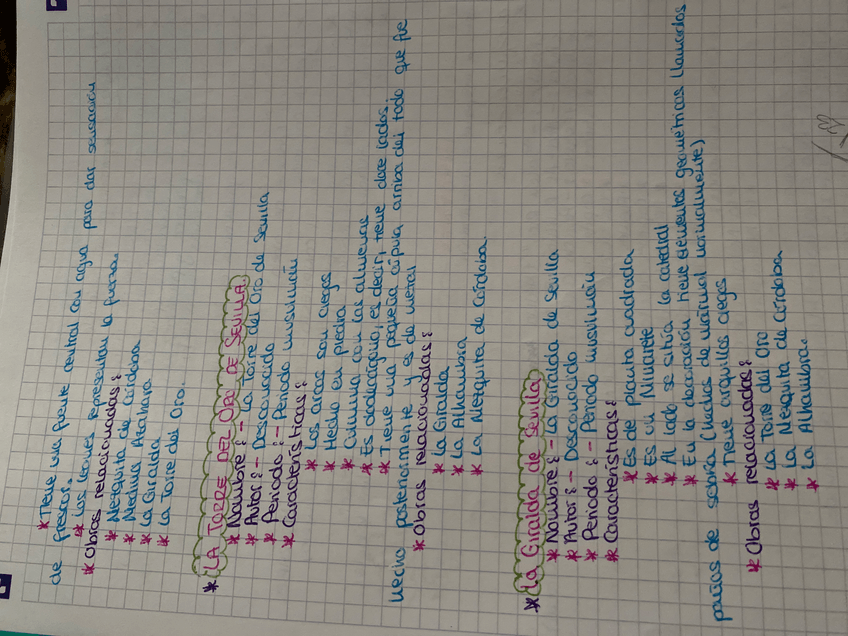 * Tiene una fuente central con agua para dar sensación
de frescor.
* Los leones representan la fuerza.
* Obras relacionadas:
* Mezquita de Córdoba
* Medina Azahara
* La Giralda
* La Torre del Oro.
* LA TORRE DEL ORO DE SEVILLA
* Nombre: - La Torre del Oro de Sevilla
* Autor: - Desconocido
* Periodo: - Periodo musulmán
* Características:
* Los arcos son ciegos
* Hecho en piedra
* Culmina con las almenas
* Es dodecágono, es decir, tiene doce lados.
* Tiene una pequeña cúpula arriba del todo que fue
hecho posteriormente y es de metal
* Obras relacionadas:
* La Giralda
* La Alhambra
* La Mezquita de Córdoba.
* La Giralda de Sevilla
* Nombre: - La Giralda de Sevilla
* Autor: - Desconocido
* Periodo: - Periodo musulmán
* Características:
* Es de planta cuadrada
* Es un Minarete
* Al lado se sitúa la catedral
* En la decoración tiene elementos geométricos llamados
paños de sebka (hechos de normalmente)
* Tiene arquillos ciegos
* Obras relacionadas:
* La Torre del Oro
* La Mezquita de Córdoba
* La Alhambra.